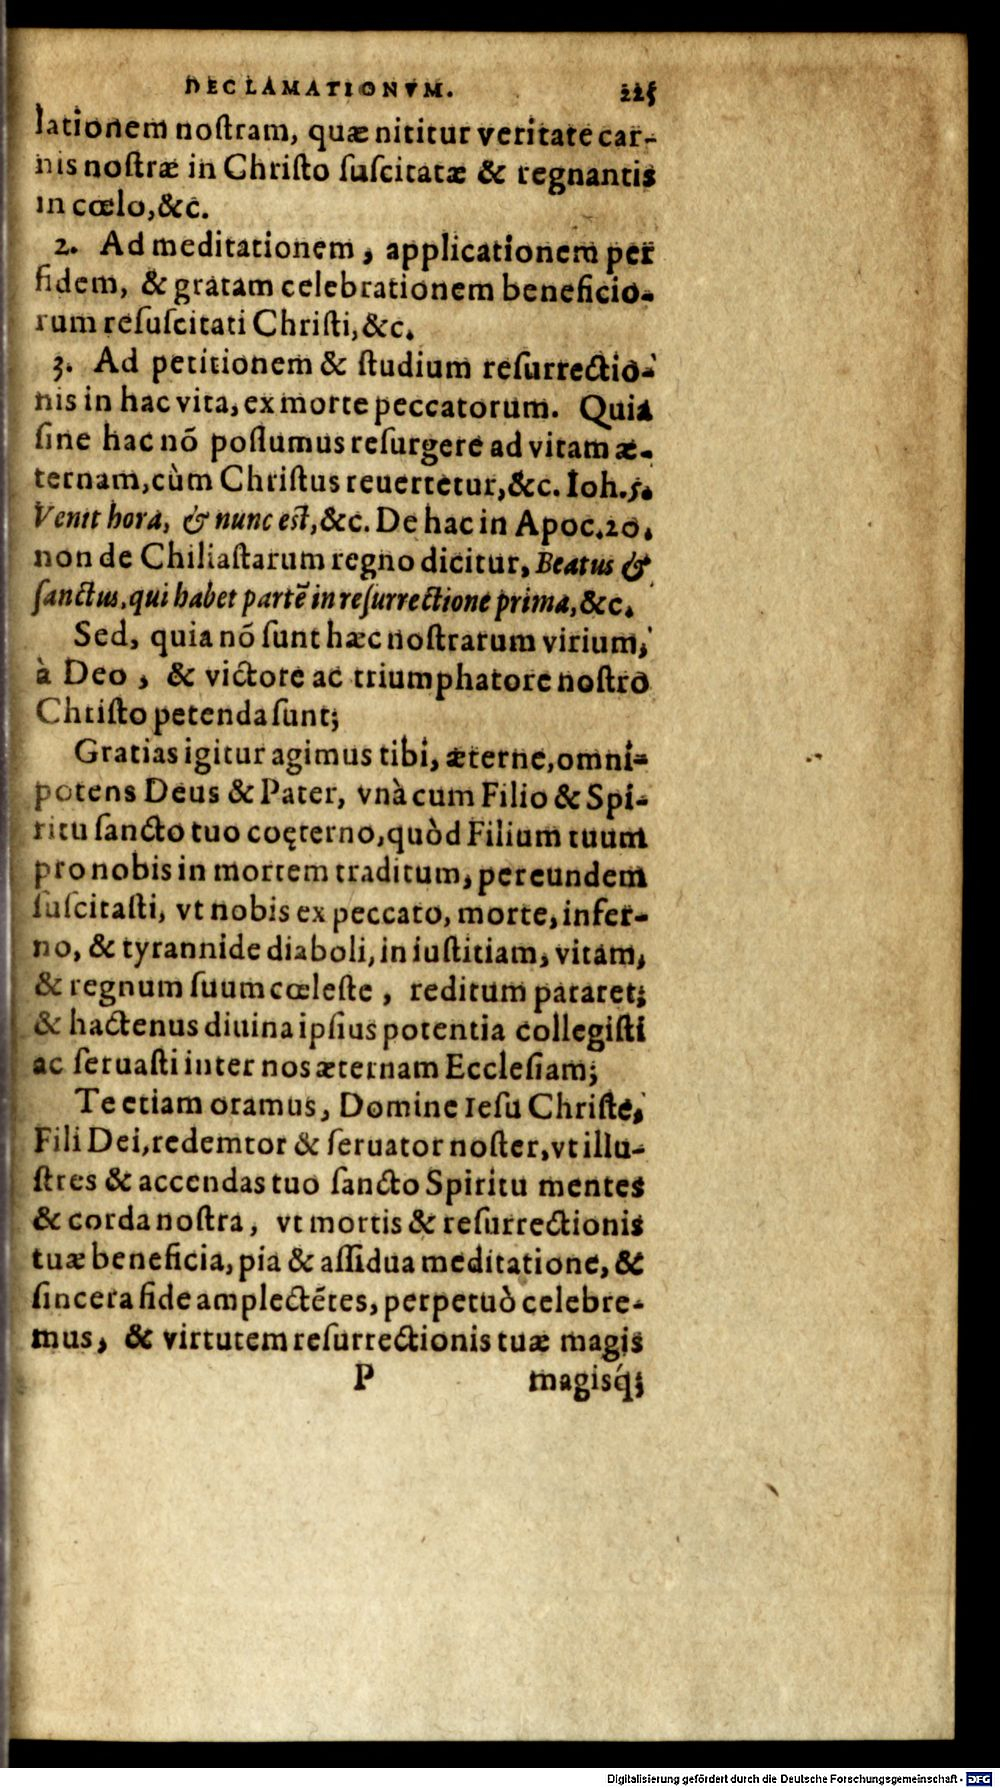 DECLAMATIONVM. 225
lationem noſtram, quæ nititur veritate car-
nis noſtræ in Chriſto ſuſcitatæ & regnantis
in cœlo, &c.
2. Ad meditationem, applicationem per
fidem, & gratam celebrationem beneficio-
rum reſuſcitati Chriſti, &c.
3. Ad petitionem & ſtudium reſurrectio-
nis in hac vita, ex morte peccatorum. Quia
ſine hac nõ poſſumus reſurgere ad vitam æ-
ternam, cùm Chriſtus reuertetur, &c. Ioh. 5.
Venit hora, & nunc eſt, &c. De hac in Apoc. 20.
non de Chiliaſtarum regno dicitur, Beatus &
ſanctus, qui habet partẽ in reſurrectione prima, &c.
Sed, quia nõ ſunt hæc noſtrarum virium,
à Deo, & victore ac triumphatore noſtro
Chriſto petenda ſunt;
Gratias igitur agimus tibi, æterne, omni-
potens Deus & Pater, vnà cum Filio & Spi-
ritu ſancto tuo coęterno, quòd Filium tuum
pro nobis in mortem traditum, per eundem
ſuſcitaſti, vt nobis ex peccato, morte, infer-
no, & tyrannide diaboli, in iuſtitiam, vitam,
& regnum ſuum cœleſte, reditum pararet;
& hactenus diuina ipſius potentia collegiſti
ac ſeruaſti inter nos æternam Eccleſiam;
Te etiam oramus, Domine Ieſu Chriſte,
Fili Dei, redemtor & ſeruator noſter, vt illu-
ſtres & accendas tuo ſancto Spiritu mentes
& corda noſtra, vt mortis & reſurrectionis
tuæ beneficia, pia & aſſidua meditatione, &
ſincera fide amplectẽtes, perpetuò celebre-
mus, & virtutem reſurrectionis tuæ magis
P magisq́;
Digitalisierung gefördert durch die Deutsche Forschungsgemeinschaft - DFG